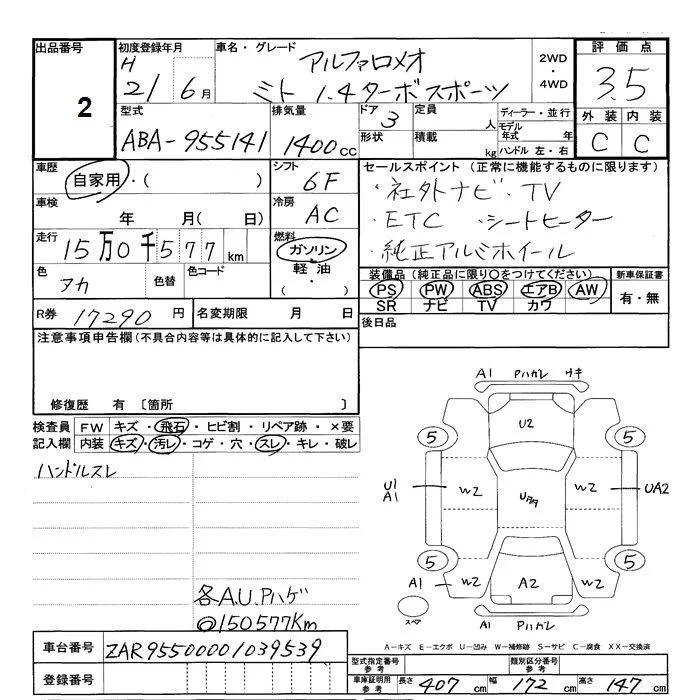 出品番号
2
初度登録年月
H
21 6月
車名・グレード
アルファロメオ
ミト 1.4ターボスポーツ
2WD
・
4WD
評価点
3.5
型式
ABA-955141
排気量
1400cc
ドア
3
形状
定員
人
積載
kg
ディーラー・並行
モデル年式 年
ハンドル 左・右
外装 内装
C C
車歴
自家用・( )
シフト
6F
セールスポイント (正常に機能するものに限ります)
・社外ナビ・TV
・ETC ・シートヒーター
・純正アルミホイール
車検
年 月( 日)
冷房
AC
走行
15万0千577km
燃料
ガソリン
軽油
( ・ )
色
アカ
色替
色コード
装備品 (純正品に限り〇をつけてください)
PS PW ABS エアB AW
SR ナビ TV カワ
新車保証書
有・無
R券 17290円
名変期限 月 日
後日品
注意事項申告欄(不具合内容等は具体的に記入して下さい)
修復歴 有 〔箇所 〕
検査員記入欄
FW キズ・飛石・ヒビ割・リペア跡・×要
内装 キズ・汚レ・コゲ・穴・スレ・キレ・破レ
ハンドルスレ
各A.U.Pハゲ
@150577Km
A1 Pハガレ ワキ
U2
5 5
U1
A1
W2 W2
UA2
5 5
A1 W2 W2
A2
スペア
A1 Pハガレ
A-キズ E-エクボ U-凹み W-補修跡 S-サビ C-腐食 XX-交換済
車台番号 ZAR95500001039539
登録番号
型式指定番号
参考
類別区分番号
参考
車庫証明用
参考
長さ 407cm 幅 172cm 高さ 147cm